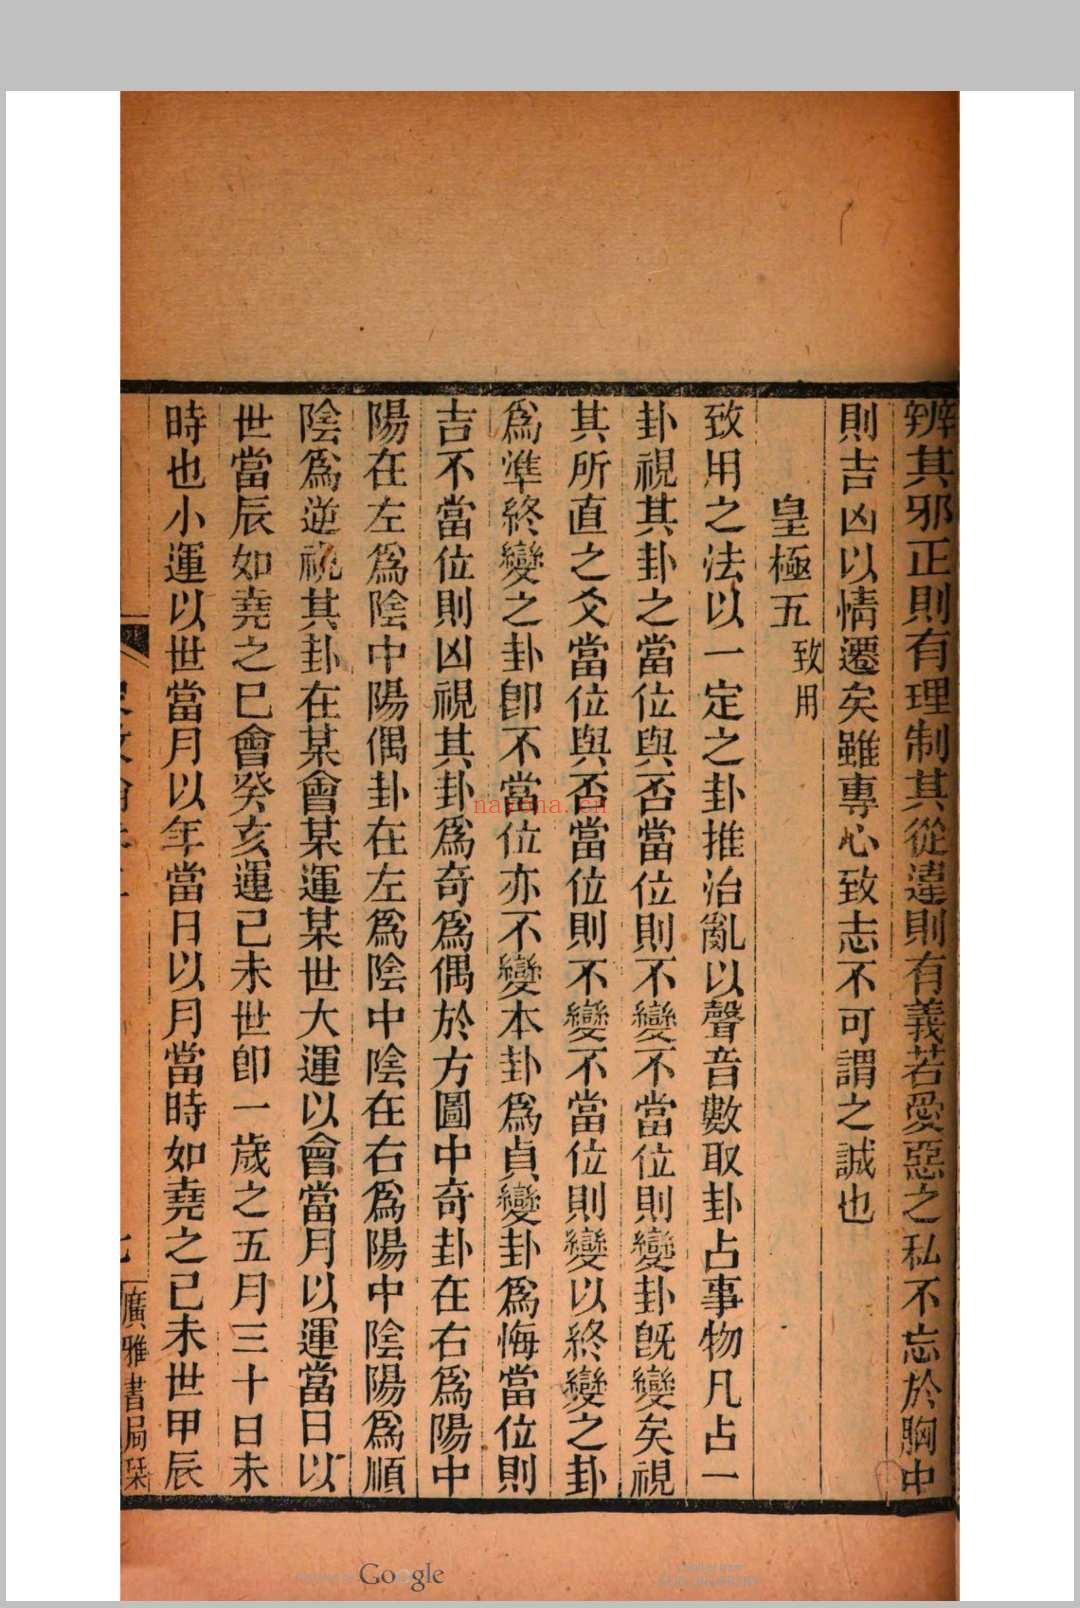 辨其邪正則有理制其從違則有義若愛惡之私不忘於胸中
則吉凶以情遷矣雖專心致志不可謂之誠也
皇極五致用
致用之法以一定之卦推治亂以聲音數取卦占事物凡占一
卦視其卦之當位與否當位則不變不當位則變卦旣變矣視
其所直之爻當位與否當位則不變不當位則變以終變之卦
爲準終變之卦卽不當位亦不變本卦爲貞變卦爲悔當位則
吉不當位則凶視其卦爲奇爲偶於方圖中奇卦在右爲陽中
陽在左爲陰中陽偶卦在左爲陰中陰在右爲陽中陰陽爲順
陰爲逆視其卦在某會某運某世大運以會當月以運當日以
世當辰如堯之巳會癸亥運己未世卽一歲之五月三十日未
時也小運以世當月以年當日以月當時如堯之己未世甲辰
廣雅書局栞
nayona.cn
Google